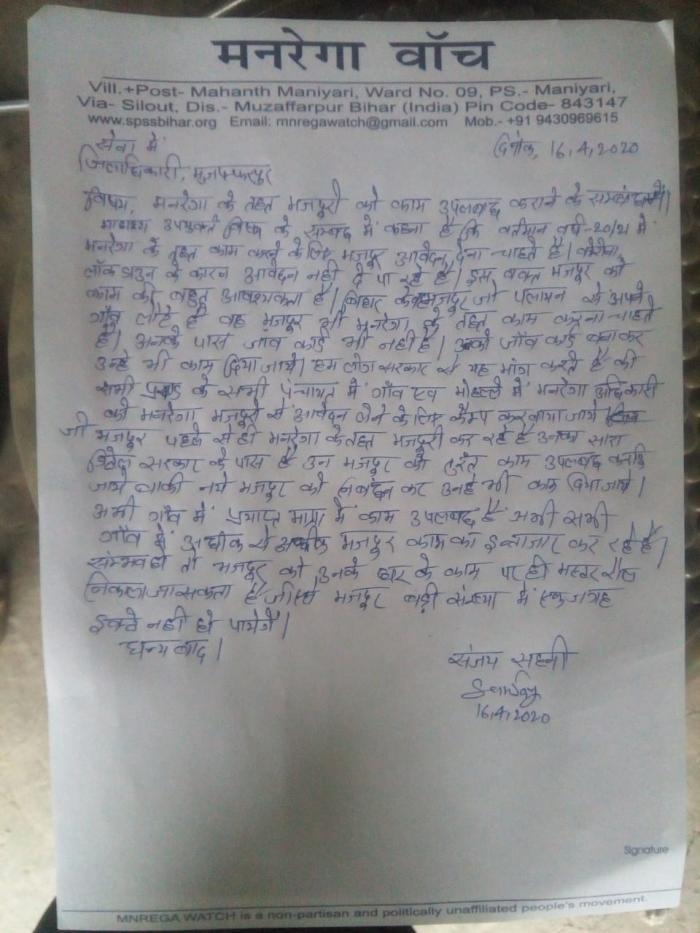 मनरेगा वॉच
Vill.+Post- Mahanth Maniyari, Ward No. 09, PS.- Maniyari,
Via- Silout, Dis.- Muzaffarpur Bihar (India) Pin Code- 843147
www.spssbihar.org Email: mnregawatch@gmail.com Mob.- +91 9430969615
सेवा में
दिनांक, 16,4,2020
जिलाधिकारी, मुजफ्फरपुर
विषय, मनरेगा के तहत मजदूरो को काम उपलबद्ध कराने के सम्बंध में।
महाशय उपयुक्त विषय के सम्बंद में कहना है कि वर्तमान वर्ष-20/21 मे
मनरेगा के तहत काम करने के लिए मजदूर आवेदन देना चाहते है। कोरोना
लॉक डाउन के कारन आवेदन नही दे पा रहे है। इस वक्त मजदूर को
काम की बहुत आवश्यकता है। बिहार के मजदूर जो पलायन से अपने
गाँव लौटे है वह मजदूर भी मनरेगा के तहत काम करना चाहते
है। उनके पास जॉब कार्ड भी नही है। उनको जॉब कार्ड बनाकर
उन्हे भी काम दिया जाये। हम लोग सरकार से यह मांग करते है की
सभी प्रखंड के सभी पंचायत में गाँव एव मोहल्ले में मनरेगा अधिकारी
को मनरेगा मजदूरो से आवेदन लेने के लिए कैम्प करवाया जाये
जो मजदूर पहले से ही मनरेगा के तहत मजदूरी कर रहे है उनका सारा
डिटेल सरकार के पास है उन मजदूर को तुरंत काम उपलबद कराई
जाये बाकी नये मजदूर को निबंधन कर उनहे भी काम दिया जाये।
अभी गाँव में प्रयाप्त मात्रा में काम उपलबद है अभी सभी
गाँव में अधीक से अधीक मजदूर काम का इन्तजार कर रहे है।
संम्भव हो तो मजदूर को उनके घर के काम पर ही मस्टर रौल
निकाला जा सकता है जीससे मजदूर बड़ी संख्या में एक जगह
इकठ्ठे नही हो पायेगें।
धन्यबाद।
संजय सहनी
16,4,2020
Signature
MNREGA WATCH is a non-partisan and politically unaffiliated people's movement.